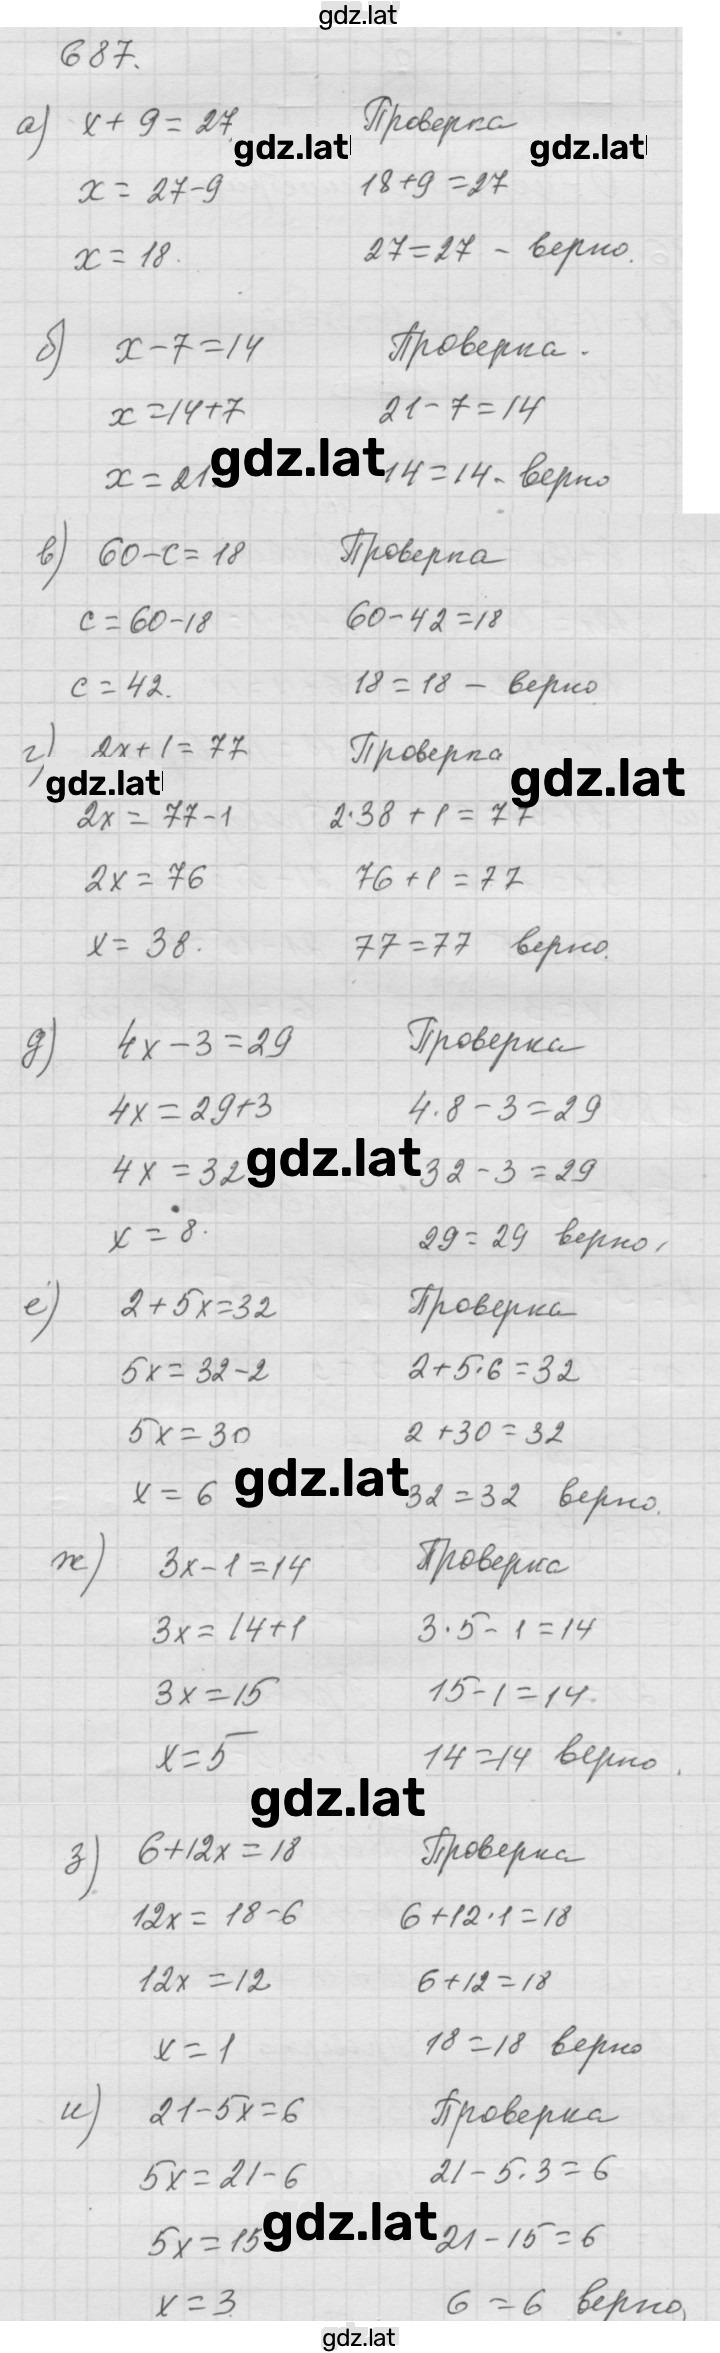 gdz.lat
687.
а) x + 9 = 27 Проверка
gdz.lat gdz.lat
x = 27 - 9 18 + 9 = 27
x = 18. 27 = 27 - верно.
б) x - 7 = 14 Проверка.
x = 14 + 7 21 - 7 = 14
gdz.lat
x = 21. 14 = 14 - верно
в) 60 - c = 18 Проверка
c = 60 - 18 60 - 42 = 18
c = 42. 18 = 18 - верно
г) 2x + 1 = 77 Проверка
gdz.lat gdz.lat
2x = 77 - 1 2·38 + 1 = 77
2x = 76 76 + 1 = 77
x = 38. 77 = 77 верно.
д) 4x - 3 = 29 Проверка
4x = 29 + 3 4·8 - 3 = 29
4x = 32 gdz.lat 32 - 3 = 29
x = 8. 29 = 29 верно,
е) 2 + 5x = 32 Проверка
5x = 32 - 2 2 + 5·6 = 32
5x = 30 2 + 30 = 32
x = 6 gdz.lat 32 = 32 верно.
ж) 3x - 1 = 14 Проверка
3x = 14 + 1 3·5 - 1 = 14
3x = 15 15 - 1 = 14.
x = 5 14 = 14 верно.
gdz.lat
з) 6 + 12x = 18 Проверка
12x = 18 - 6 6 + 12·1 = 18
12x = 12 6 + 12 = 18
x = 1 18 = 18 верно
и) 21 - 5x = 6 Проверка
5x = 21 - 6 21 - 5·3 = 6
gdz.lat
5x = 15 21 - 15 = 6
x = 3. 6 = 6 верно,
gdz.lat